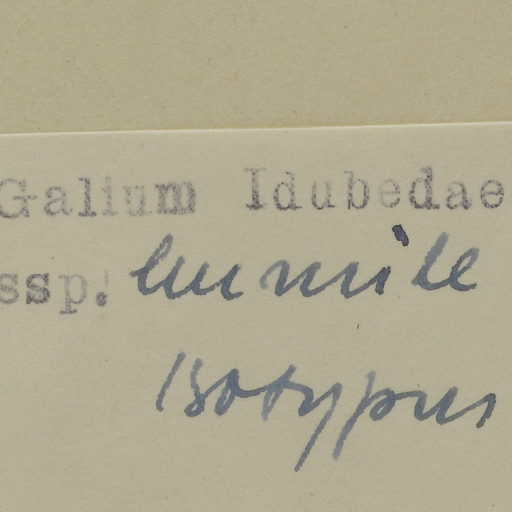 Galium Idubedae
ssp. humile
Isotypus